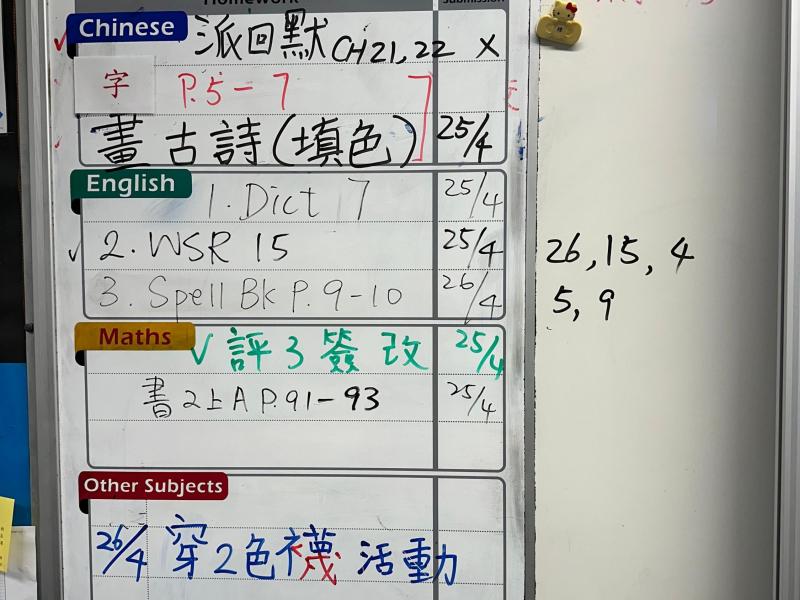 Homework Submission
Chinese 派回默 CH21,22 X
字 P.5-7
畫古詩(填色) 25/4
English 1. Dict 7 25/4
2. WSR 15 25/4 26, 15, 4
3. Spell Bk P. 9-10 26/4 5, 9
Maths √ 評3簽改 25/4
書2上A P.91-93 25/4
Other Subjects
26/4 穿2色襪活動